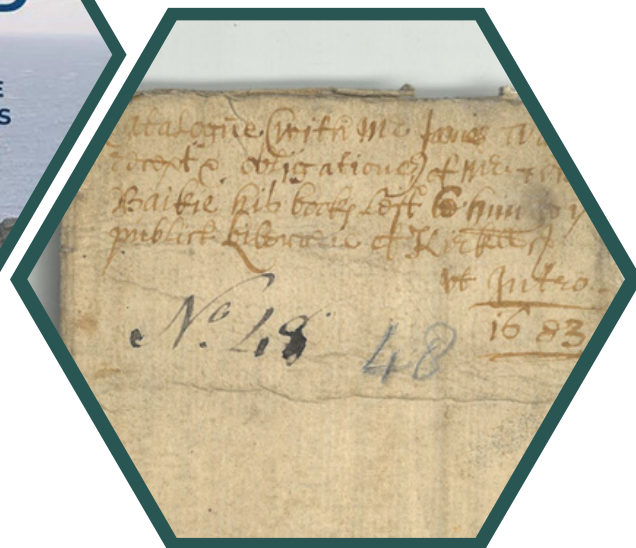 E
S
Catalogue (with Mr James
recept & obligatione) of Mr
Baikie his books left by him
publick Librarie of Kirk
ut intro
1683
No. 48 48